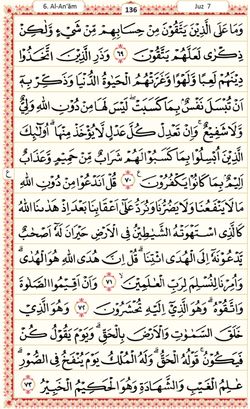 6. Al-An'âm 136 Juz 7
وَمَا عَلَى الَّذِيْنَ يَتَّقُوْنَ مِنْ حِسَابِهِمْ مِّنْ شَيْءٍ وَّلٰكِنْ
ذِكْرٰى لَعَلَّهُمْ يَتَّقُوْنَ ۝٦٩ وَذَرِ الَّذِيْنَ اتَّخَذُوْا
دِيْنَهُمْ لَعِبًا وَّلَهْوًا وَّغَرَّتْهُمُ الْحَيٰوةُ الدُّنْيَا وَذَكِّرْ بِهٖٓ
اَنْ تُبْسَلَ نَفْسٌۢ بِمَا كَسَبَتْ ۖ لَيْسَ لَهَا مِنْ دُوْنِ اللّٰهِ وَلِيٌّ
وَّلَا شَفِيْعٌ ۚ وَاِنْ تَعْدِلْ كُلَّ عَدْلٍ لَّا يُؤْخَذْ مِنْهَا ؕ اُولٰٓئِكَ
الَّذِيْنَ اُبْسِلُوْا بِمَا كَسَبُوْا ۚ لَهُمْ شَرَابٌ مِّنْ حَمِيْمٍ وَّعَذَابٌ
اَلِيْمٌۢ بِمَا كَانُوْا يَكْفُرُوْنَ ۝٧٠ قُلْ اَنَدْعُوْا مِنْ دُوْنِ اللّٰهِ
مَا لَا يَنْفَعُنَا وَلَا يَضُرُّنَا وَنُرَدُّ عَلٰٓى اَعْقَابِنَا بَعْدَ اِذْ هَدٰىنَا اللّٰهُ
كَالَّذِى اسْتَهْوَتْهُ الشَّيٰطِيْنُ فِى الْاَرْضِ حَيْرَانَ ۖ لَهٗٓ اَصْحٰبٌ
يَّدْعُوْنَهٗٓ اِلَى الْهُدَى ائْتِنَا ؕ قُلْ اِنَّ هُدَى اللّٰهِ هُوَ الْهُدٰى ؕ
وَاُمِرْنَا لِنُسْلِمَ لِرَبِّ الْعٰلَمِيْنَ ۝٧١ وَاَنْ اَقِيْمُوا الصَّلٰوةَ
وَاتَّقُوْهُ ؕ وَهُوَ الَّذِيْٓ اِلَيْهِ تُحْشَرُوْنَ ۝٧٢ وَهُوَ الَّذِيْ
خَلَقَ السَّمٰوٰتِ وَالْاَرْضَ بِالْحَقِّ ؕ وَيَوْمَ يَقُوْلُ كُنْ
فَيَكُوْنُ ؕ قَوْلُهُ الْحَقُّ ؕ وَلَهُ الْمُلْكُ يَوْمَ يُنْفَخُ فِى الصُّوْرِ ؕ
عٰلِمُ الْغَيْبِ وَالشَّهَادَةِ ؕ وَهُوَ الْحَكِيْمُ الْخَبِيْرُ ۝٧٣